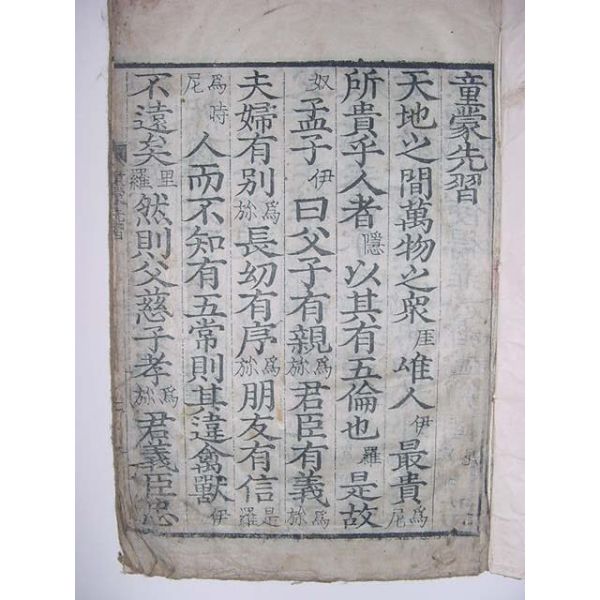 童蒙先習
天地之間萬物之衆厓唯人伊最貴爲尼
所貴乎人者隱以其有五倫也羅是故
奴孟子伊曰父子有親爲旀君臣有義爲旀
夫婦有別爲旀長幼有序爲旀朋友有信是羅
爲時尼人而不知有五常則其違禽獸伊
不遠矣里羅然則父慈子孝爲旀君義臣忠